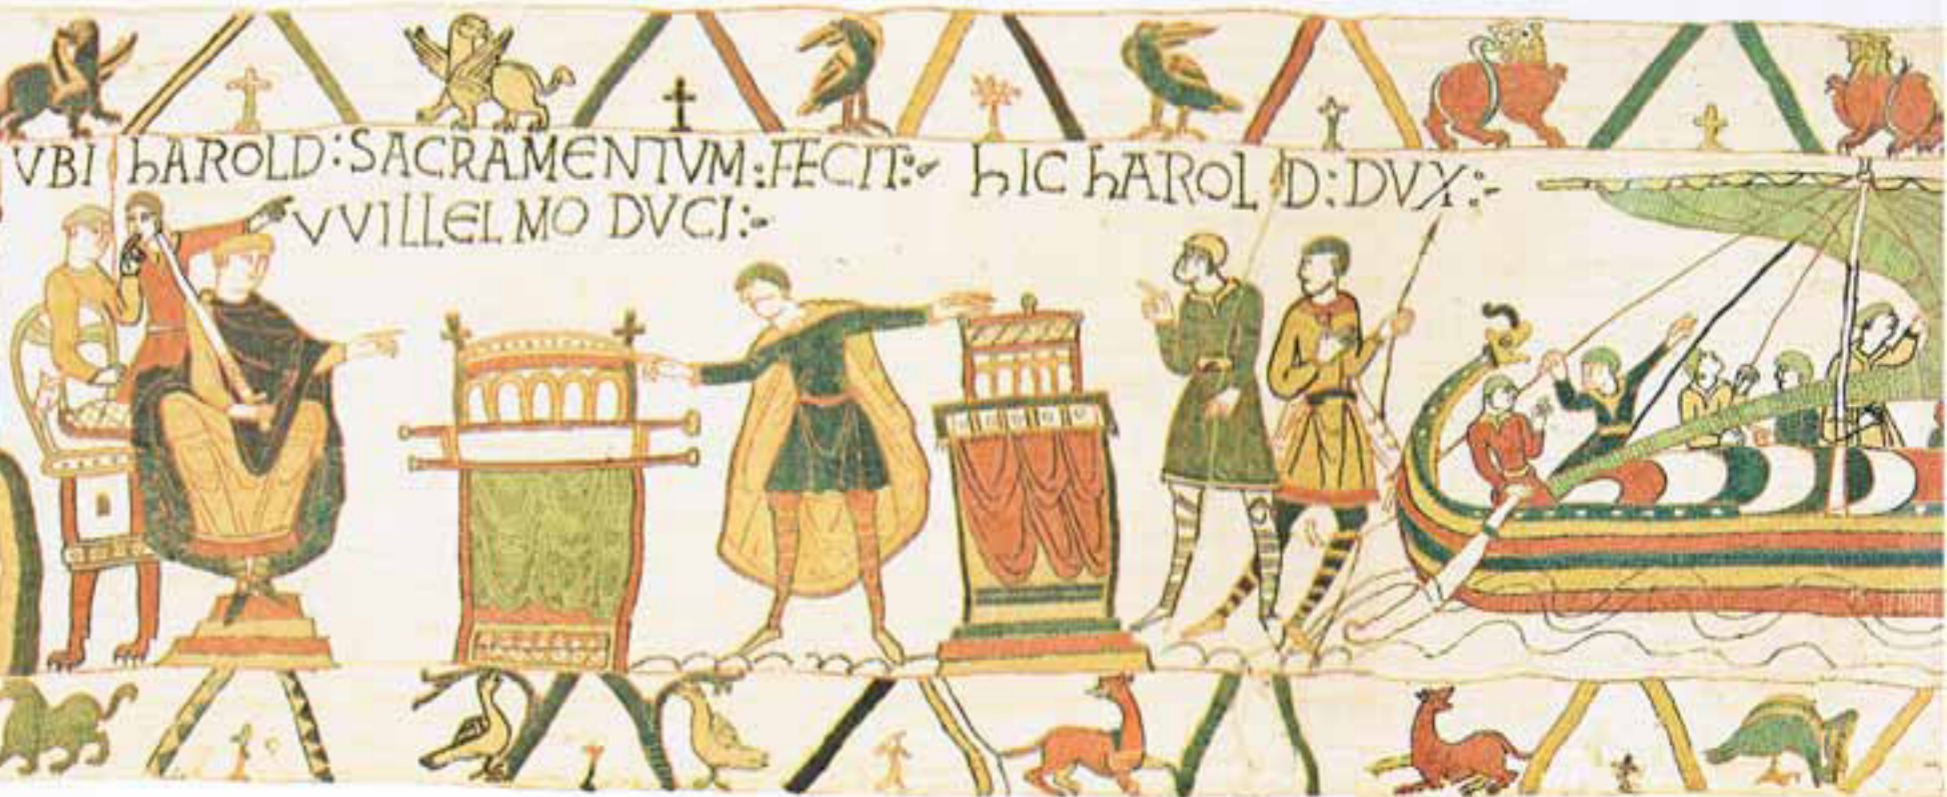 VBI hAROLD:SACRAMENTVM:FECIT:~
VVILLELMO DVCI:~
hIC hAROLD:DVX:~